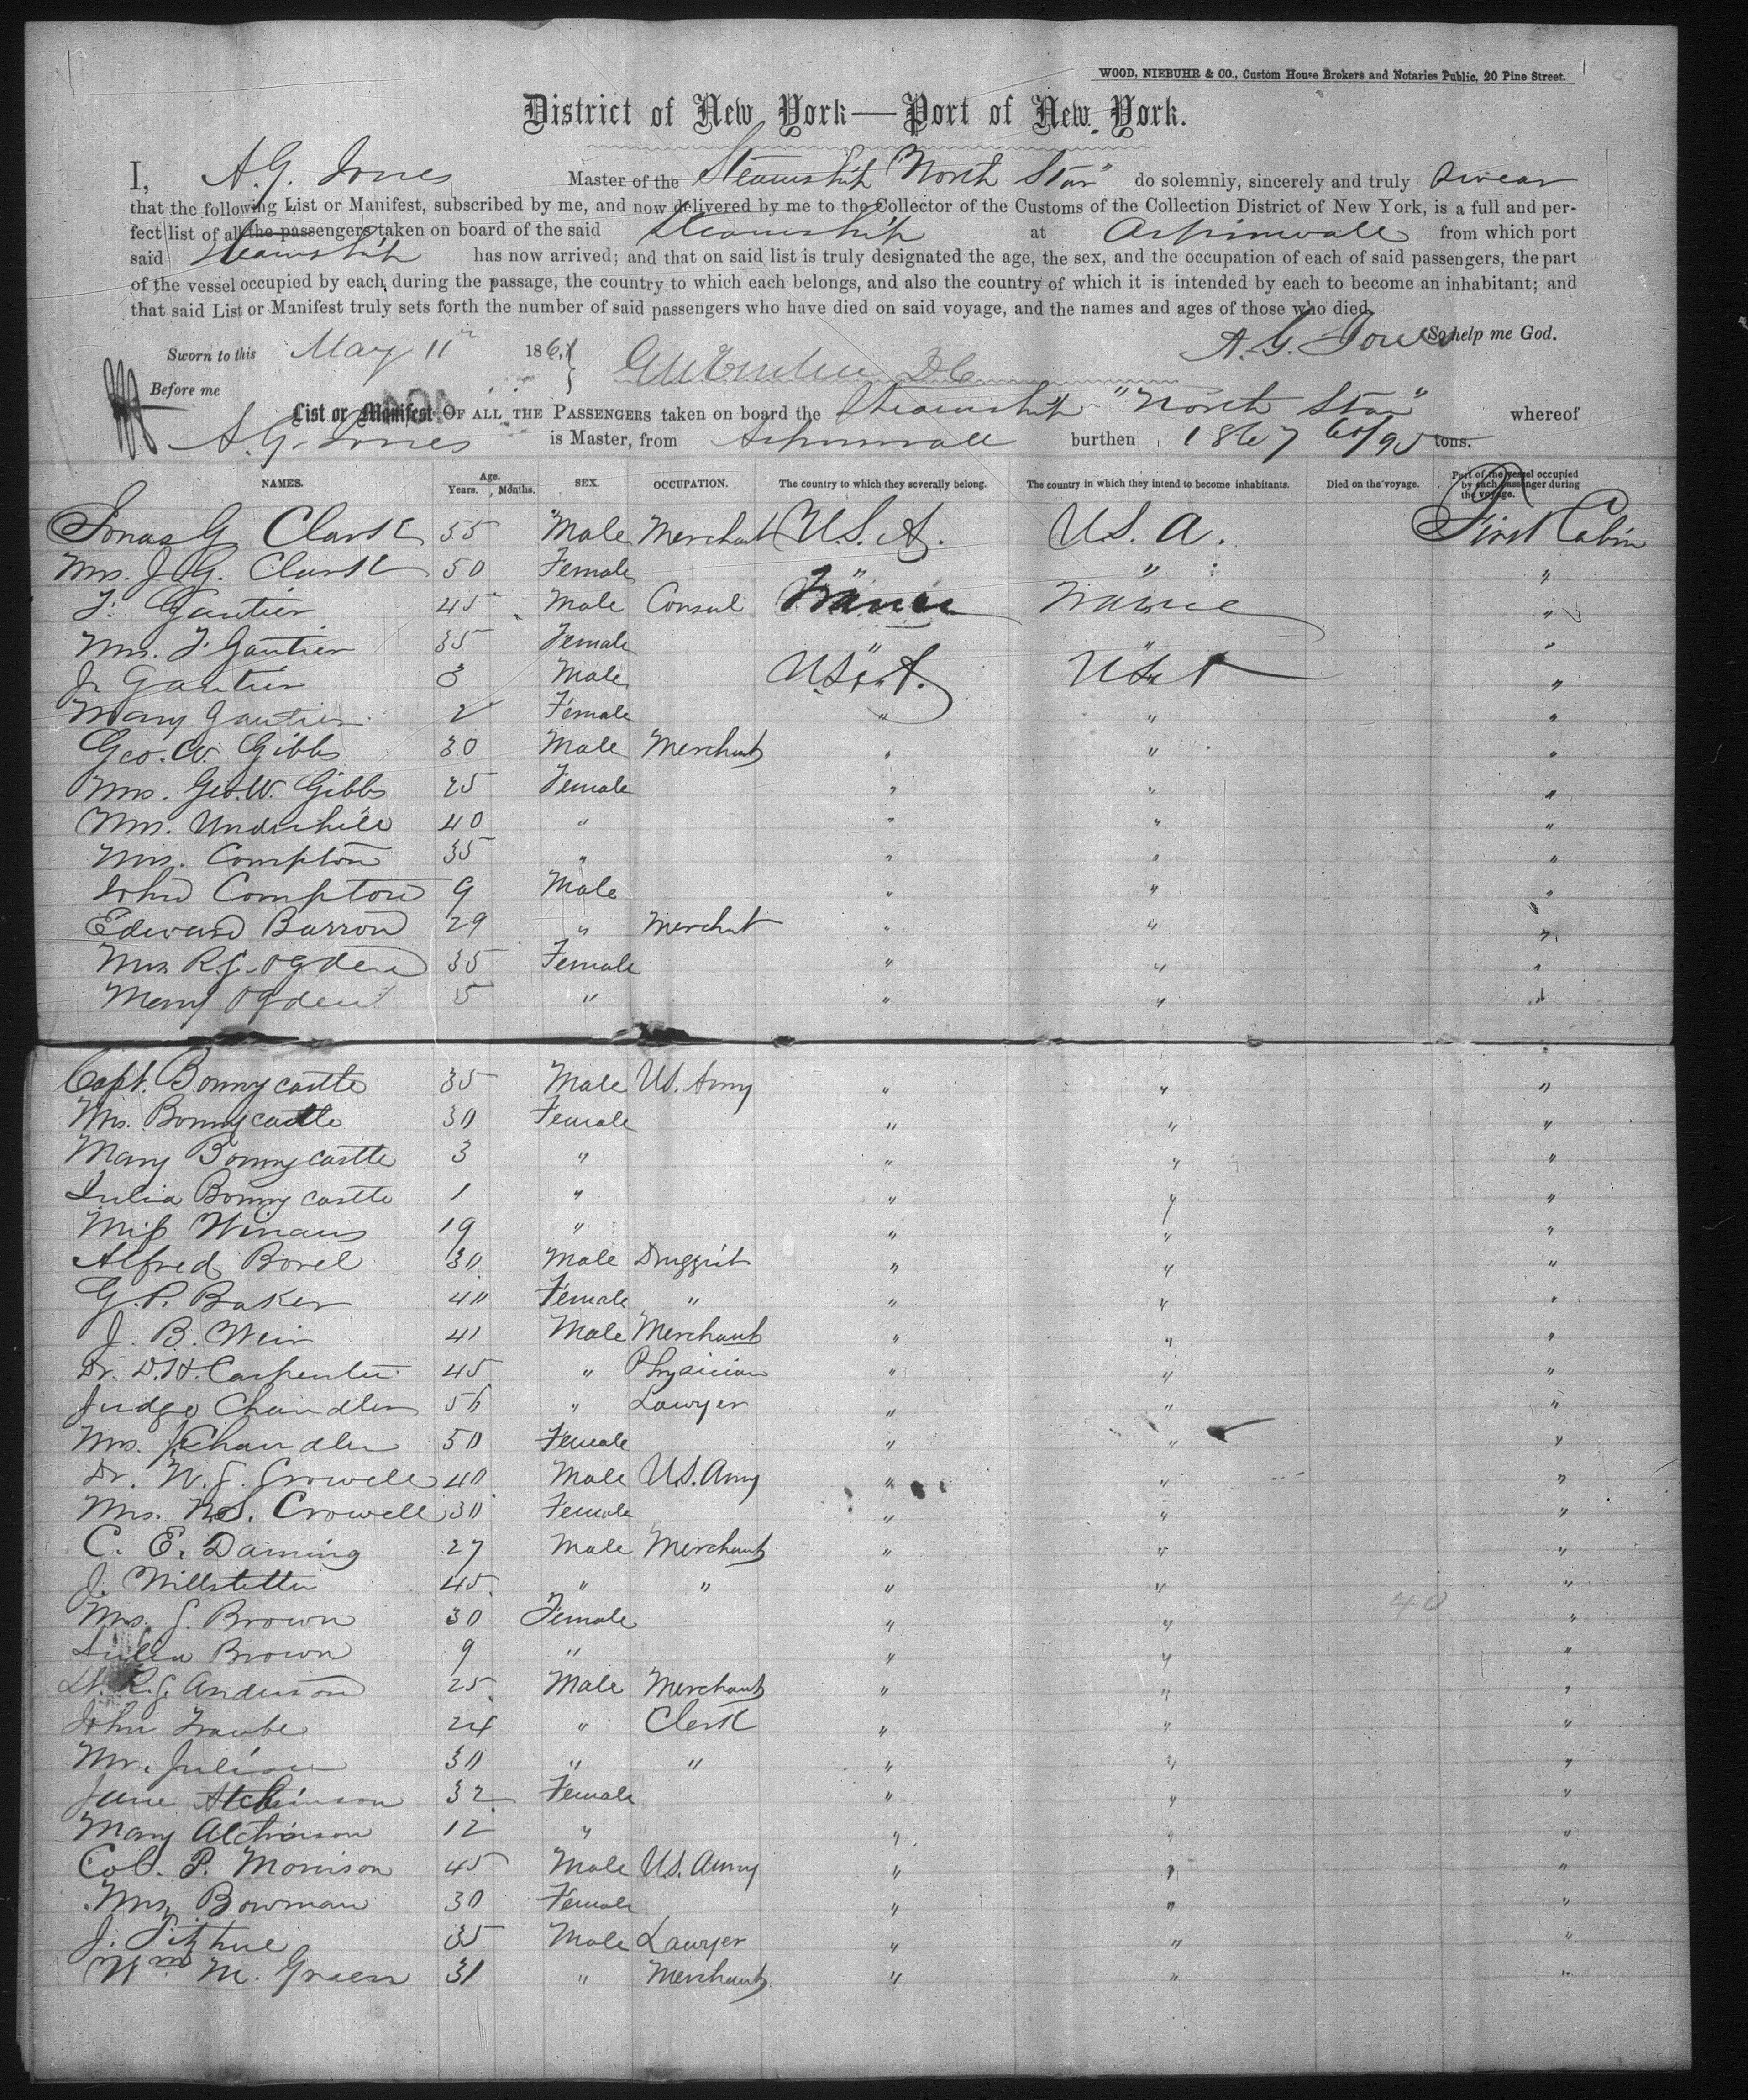 WOOD, NIEBUHR & CO., Custom House Brokers and Notaries Public, 20 Pine Street.
District of New York—Port of New York.
I, A. G. Jones Master of the Steamship "North Star" do solemnly, sincerely and truly swear
that the following List or Manifest, subscribed by me, and now delivered by me to the Collector of the Customs of the Collection District of New York, is a full and per-
fect list of all the passengers taken on board of the said Steamship at Aspinwall from which port
said Steamship has now arrived; and that on said list is truly designated the age, the sex, and the occupation of each of said passengers, the part
of the vessel occupied by each during the passage, the country to which each belongs, and also the country of which it is intended by each to become an inhabitant; and
that said List or Manifest truly sets forth the number of said passengers who have died on said voyage, and the names and ages of those who died.
So help me God.
Sworn to this May 11th 186 A. G. Jones
Before me
List or Manifest OF ALL THE PASSENGERS taken on board the Steamship "North Star" whereof
A. G. Jones is Master, from Aspinwall burthen 1867 60/95 tons.
NAMES. Age. Years. Months. SEX. OCCUPATION. The country to which they severally belong. The country in which they intend to become inhabitants. Died on the voyage. Part of the vessel occupied by each passenger during the voyage.
Jonas G Clark 55 Male Merchant U.S.A. U.S.A. First Cabin
Mrs. J. G. Clark 50 Female " " "
F. Gautier 45 Male Consul France France "
Mrs. F Gautier 35 Female " " "
J. Gautier 3 Male U.S.A. USA "
Mary Gautier 2 Female " " "
Geo. W. Gibbs 30 Male Merchant " " "
Mrs. Geo. W. Gibbs 25 Female " " "
Mrs. Underhill 40 " " " "
Mrs. Compton 35 " " " "
John Compton 9 Male " " "
Edward Barron 29 " Merchant " " "
Mrs R. J. Ogden 35 Female " " "
Mary Ogden 5 " " " "
Capt. Bonnycastle 35 Male U.S. Army " " "
Mrs. Bonnycastle 30 Female " " "
Mary Bonnycastle 3 " " " "
Julia Bonnycastle 1 " " " "
Miss Winans 19 " " " "
Alfred Borel 30 Male Druggist " " "
G. P. Baker 40 Female " " " "
J. B. Weir 41 Male Merchant " " "
Dr. D. H. Carpenter 45 " Physician " " "
Judge Chandler 56 " Lawyer " " "
Mrs. J. Chandler 50 Female " " "
Dr. N. S. Crowell 40 Male U.S. Army " " "
Mrs. N. S. Crowell 30 Female " " "
C. E. Darning 27 Male Merchant " " "
J. Willstetter 45 " " " " "
Mrs. J. Brown 30 Female " " 40 "
Julia Brown 9 " " " "
Lt. R. J. Anderson 25 Male Merchant " " "
John Traube 24 " Clerk " " "
Mr. Julian 30 " " " " "
Jane Atchinson 32 Female " " "
Mary Atchinson 12 " " " "
Col. P. Morrison 45 Male U.S. Army " " "
Mrs. Bowman 30 Female " " "
J. 35 Male Lawyer " " "
Wm M. Green 31 " Merchant " " "